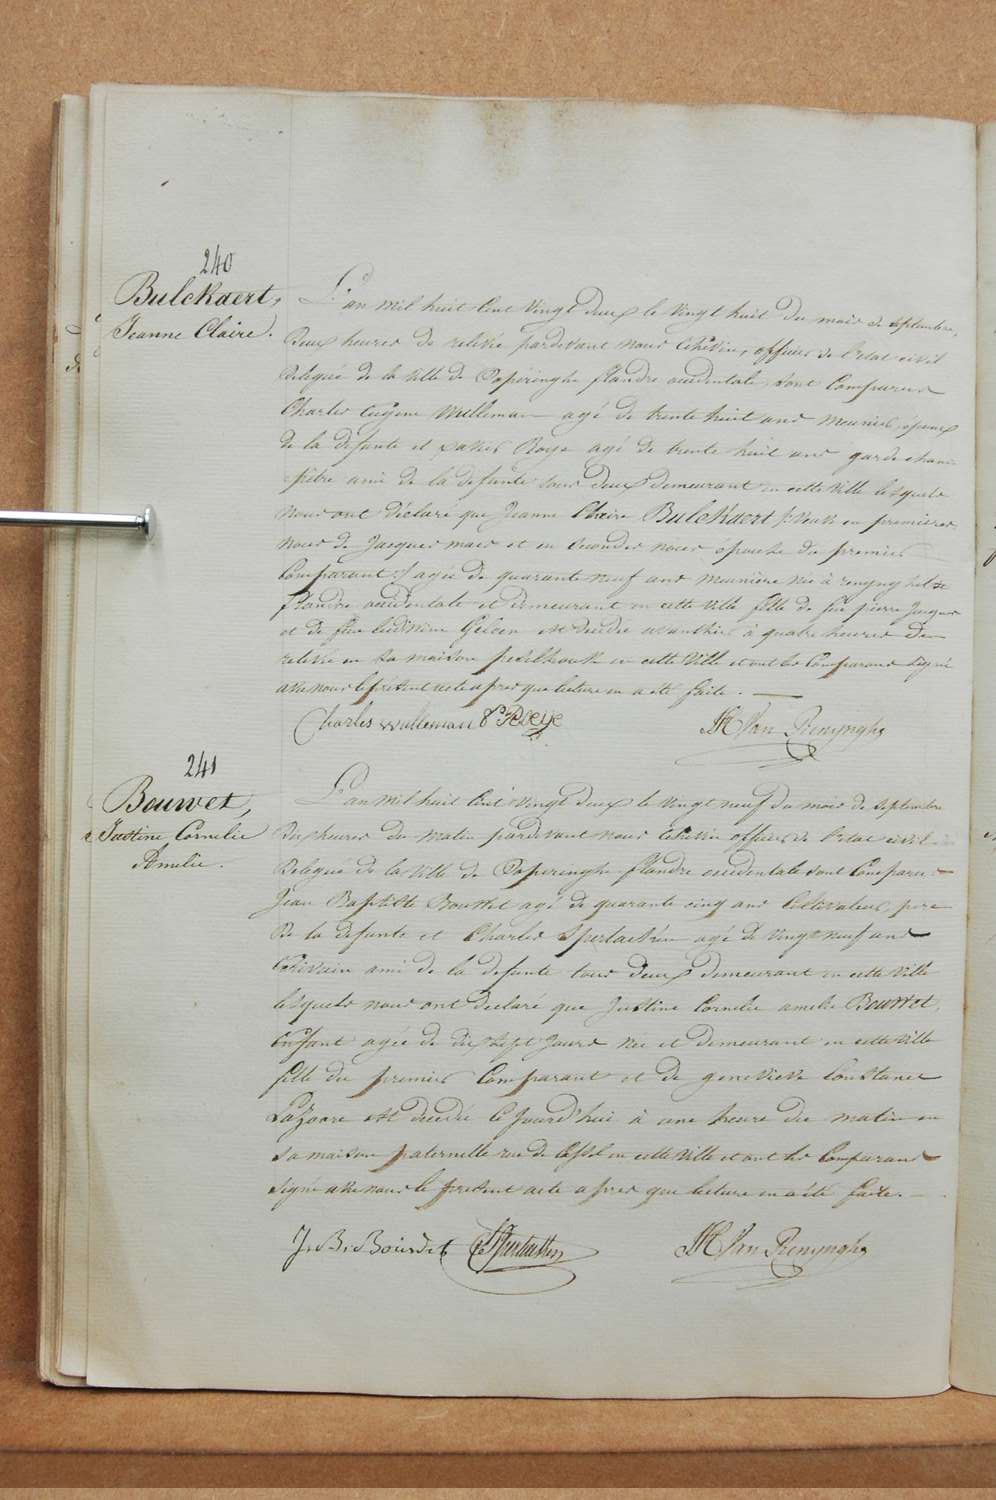 240
Bulckaert,
Jeanne Claire.
L'an mil huit cent vingt deux le vingt huit du mois de septembre,
deux heures de relevée pardevant nous Echevin, officier de l'etat civil
delegué de la ville de Poperinghe flandre occidentale, sont comparus
Charles Eugene Wulleman agé de trente huit ans meunier, époux
de la defunte et Roye agé de trente huit ans garde cham-
-pêtre ami de la defunte tous deux demeurant en cette ville lesquels
nous ont déclaré que Jeanne Claire Bulckaert veuve en premieres
noces de Jacques maes et en secondes noces épouse du premier
Comparant, agée de quarante neuf ans meunière née à
flandre occidentale et demeurant en cette ville fille de feu pierre Jacques
et de feue est decedée avanthier à quatre heures de
relevée en sa maison en cette ville et ont les Comparans signé
avec nous le présent acte apres que lecture en a été faite.
Charles Wulleman Roeye Van Renynghe
241
Bouwet,
Justine Cornelie
Amelie.
L'an mil huit cent vingt deux le vingt neuf du mois de septembre
heures du matin pardevant nous Echevin officier de l'etat civil
delegué de la ville de Poperinghe flandre occidentale sont comparus
Jean Baptiste Bouwet agé de quarante cinq ans Cultivateur, pere
de la defunte et Charles agé de vingt neuf ans
Ecrivain ami de la defunte tous deux demeurant en cette ville
lesquels nous ont declaré que Justine Cornelie amelie Bouwet,
enfant agée de dix sept jours née et demeurant en cette ville
fille du premier Comparant et de genevieve Constance
est decedée cejourd'hui à une heure du matin en
sa maison paternelle rue de en cette ville et ont les Comparans
signé avec nous le présent acte apres que lecture en a été faite.
J. B. Van Renynghe